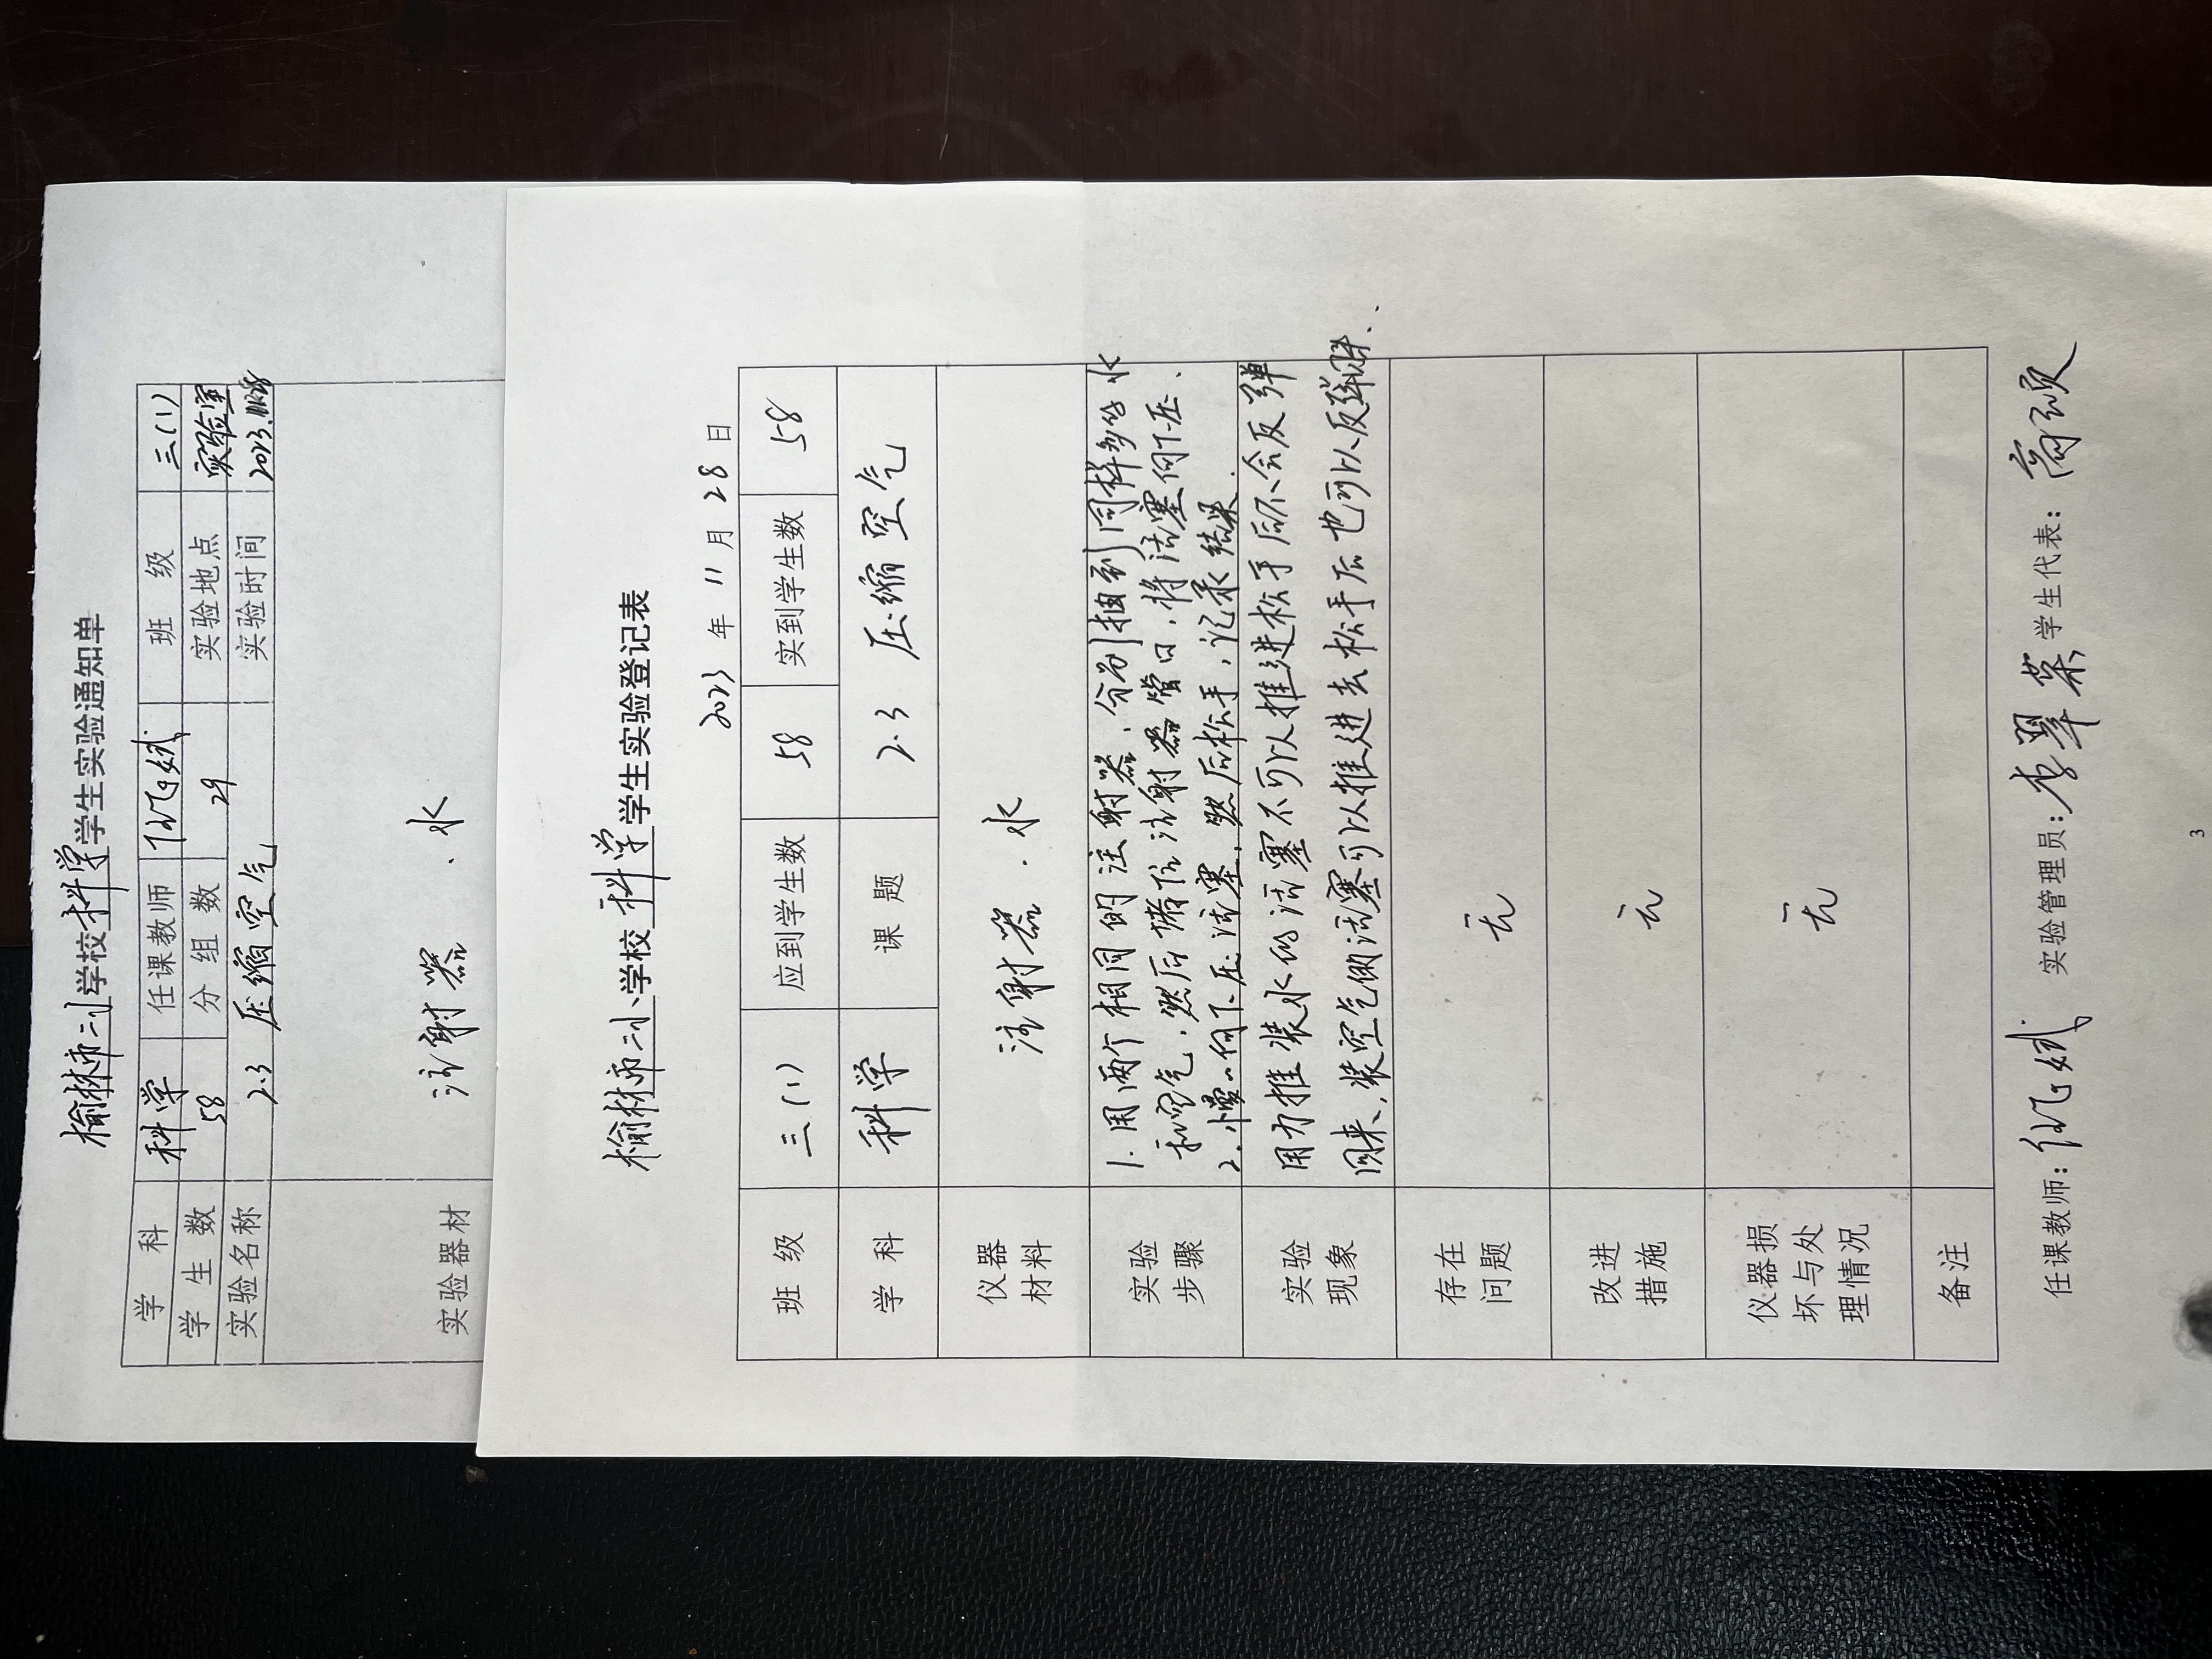 榆林市二小学校科学学生实验通知单
学 科 科学 任课教师 班 级 三(1)
学 生 数 58 分 组 数 29 实验地点 实验室
实验名称 2.3 压缩空气 实验时间 2023.11.28
实验器材 注射器 、水
榆林市二小学校科学学生实验登记表
2023 年 11 月 28 日
班 级 三(1) 应到学生数 58 实到学生数 58
学 科 科学 课 题 2.3 压缩空气
仪器
材料 注射器 、水
实验
步骤
1.用两个相同的注射器、分别抽到同样多的水
和空气,然后堵住注射器管口,将活塞向下压、
2.慢心向下压活塞,然后松手,记录结果.
实验
现象
用力推装水的活塞不可以推进松手后不会反弹
回来、装空气侧活塞可以推进去松手后也可以反弹..
存在
问题 无
改进
措施 无
仪器损
坏与处
理情况 无
备注
任课教师: 实验管理员:李翠荣 学生代表:
3